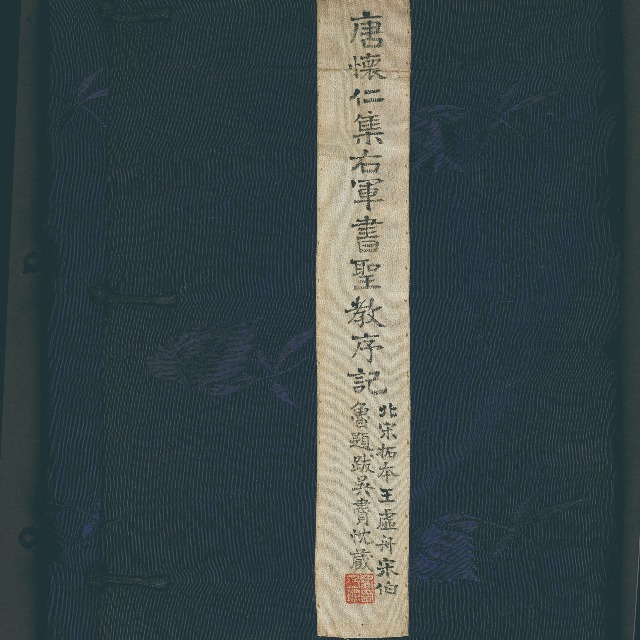 唐懷仁集右軍書聖教序記
北宋拓本王虛舟宋伯
魯題跋吳書忱藏